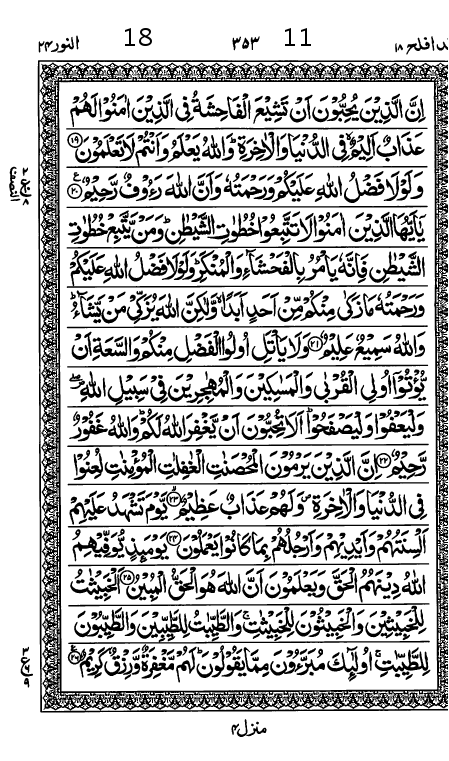 قد افلح ۱۸ 11 ۳۵۳ 18 النور ۲۴
اِنَّ الَّذِيْنَ يُحِبُّوْنَ اَنْ تَشِيْعَ الْفَاحِشَةُ فِى الَّذِيْنَ اٰمَنُوْا لَهُمْ
عَذَابٌ اَلِيْمٌ ۙ فِى الدُّنْيَا وَالْاٰخِرَةِ ؕ وَاللّٰهُ يَعْلَمُ وَاَنْتُمْ لَا تَعْلَمُوْنَ ۝۱۹
وَلَوْلَا فَضْلُ اللّٰهِ عَلَيْكُمْ وَرَحْمَتُهٗ وَاَنَّ اللّٰهَ رَءُوْفٌ رَّحِيْمٌ ۝۲۰
يٰۤاَيُّهَا الَّذِيْنَ اٰمَنُوْا لَا تَتَّبِعُوْا خُطُوٰتِ الشَّيْطٰنِ ؕ وَمَنْ يَّتَّبِعْ خُطُوٰتِ
الشَّيْطٰنِ فَاِنَّهٗ يَاْمُرُ بِالْفَحْشَآءِ وَالْمُنْكَرِ ؕ وَلَوْلَا فَضْلُ اللّٰهِ عَلَيْكُمْ
وَرَحْمَتُهٗ مَا زَكٰى مِنْكُمْ مِّنْ اَحَدٍ اَبَدًا ۙ وَّلٰكِنَّ اللّٰهَ يُزَكِّىْ مَنْ يَّشَآءُ ؕ
وَاللّٰهُ سَمِيْعٌ عَلِيْمٌ ۝۲۱ وَلَا يَاْتَلِ اُولُوا الْفَضْلِ مِنْكُمْ وَالسَّعَةِ اَنْ
يُّؤْتُوْۤا اُولِى الْقُرْبٰى وَالْمَسٰكِيْنَ وَالْمُهٰجِرِيْنَ فِىْ سَبِيْلِ اللّٰهِ ۖ
وَلْيَعْفُوْا وَلْيَصْفَحُوْا ؕ اَلَا تُحِبُّوْنَ اَنْ يَّغْفِرَ اللّٰهُ لَكُمْ ؕ وَاللّٰهُ غَفُوْرٌ
رَّحِيْمٌ ۝۲۲ اِنَّ الَّذِيْنَ يَرْمُوْنَ الْمُحْصَنٰتِ الْغٰفِلٰتِ الْمُؤْمِنٰتِ لُعِنُوْا
فِى الدُّنْيَا وَالْاٰخِرَةِ ۪ وَلَهُمْ عَذَابٌ عَظِيْمٌ ۝۲۳ يَّوْمَ تَشْهَدُ عَلَيْهِمْ
اَلْسِنَتُهُمْ وَاَيْدِيْهِمْ وَاَرْجُلُهُمْ بِمَا كَانُوْا يَعْمَلُوْنَ ۝۲۴ يَوْمَئِذٍ يُّوَفِّيْهِمُ
اللّٰهُ دِيْنَهُمُ الْحَقَّ وَيَعْلَمُوْنَ اَنَّ اللّٰهَ هُوَ الْحَقُّ الْمُبِيْنُ ۝۲۵ اَلْخَبِيْثٰتُ
لِلْخَبِيْثِيْنَ وَالْخَبِيْثُوْنَ لِلْخَبِيْثٰتِ ۚ وَالطَّيِّبٰتُ لِلطَّيِّبِيْنَ وَالطَّيِّبُوْنَ
لِلطَّيِّبٰتِ ۚ اُولٰٓئِكَ مُبَرَّءُوْنَ مِمَّا يَقُوْلُوْنَ ؕ لَهُمْ مَّغْفِرَةٌ وَّرِزْقٌ كَرِيْمٌ ۝۲۶
منزل ۴